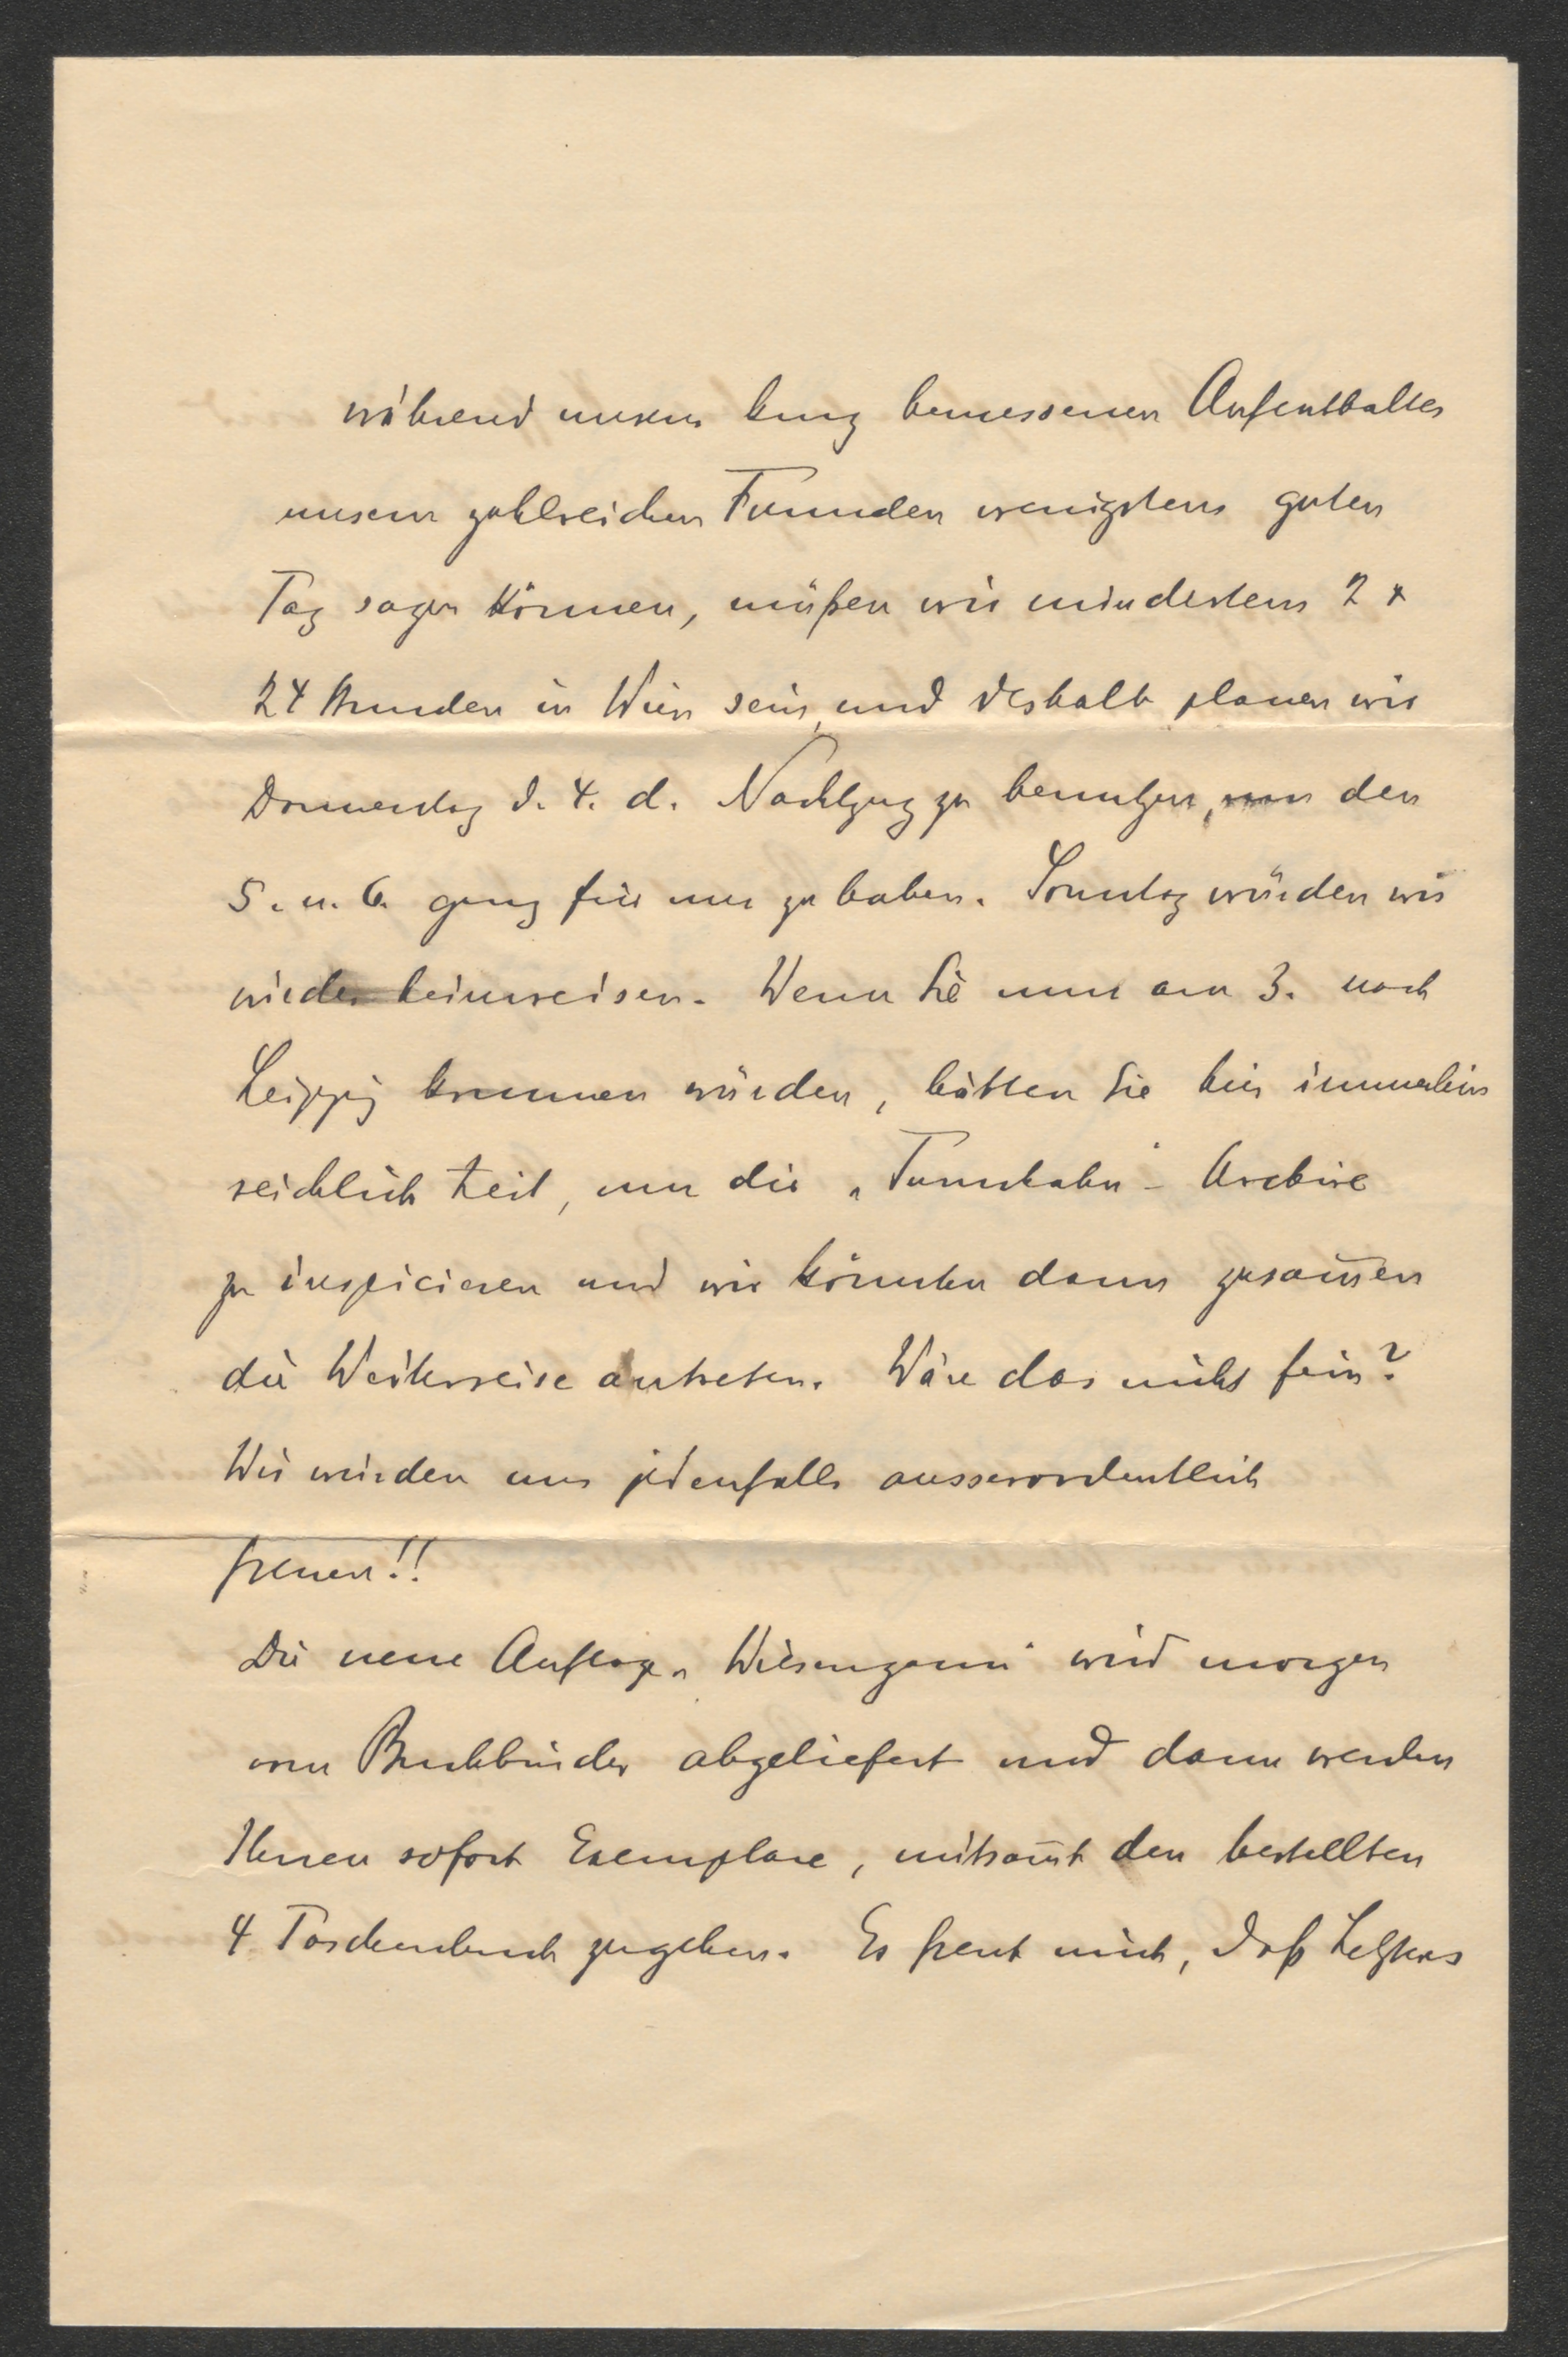 während unseres kurz bemessenen Aufenthaltes
unseren zahlreichen Freunden wenigstens guten
Tag sagen können, müßen wir mindestens 2 x
24 Stunden in Wien sein, und deshalb planen wir
Donnerstag d. 4. d. Nachtzug zu benutzen, um den
5. u. 6. ganz für uns zu haben. Sonntag würden wir
wieder heimreisen. Wenn Sie nun am 3. nach
Leipzig kommen würden, hätten Sie hier immerhin
reichlich Zeit, um die „Turmhahn"- Archive
zu inspicieren und wir könnten dann zusam̅en
die Weiterreise antreten. Wäre das nicht fein?
Wir würden uns jedenfalls ausserordentlich
freuen!!
Die neue Auflage „Wiesenzaun" wird morgen
vom Buchbinder abgeliefert und dann werden
Ihnen sofort Exemplare, mitsam̅t den bestellten
4 Taschenbuch zugehen. Es freut mich, daß Letzteres